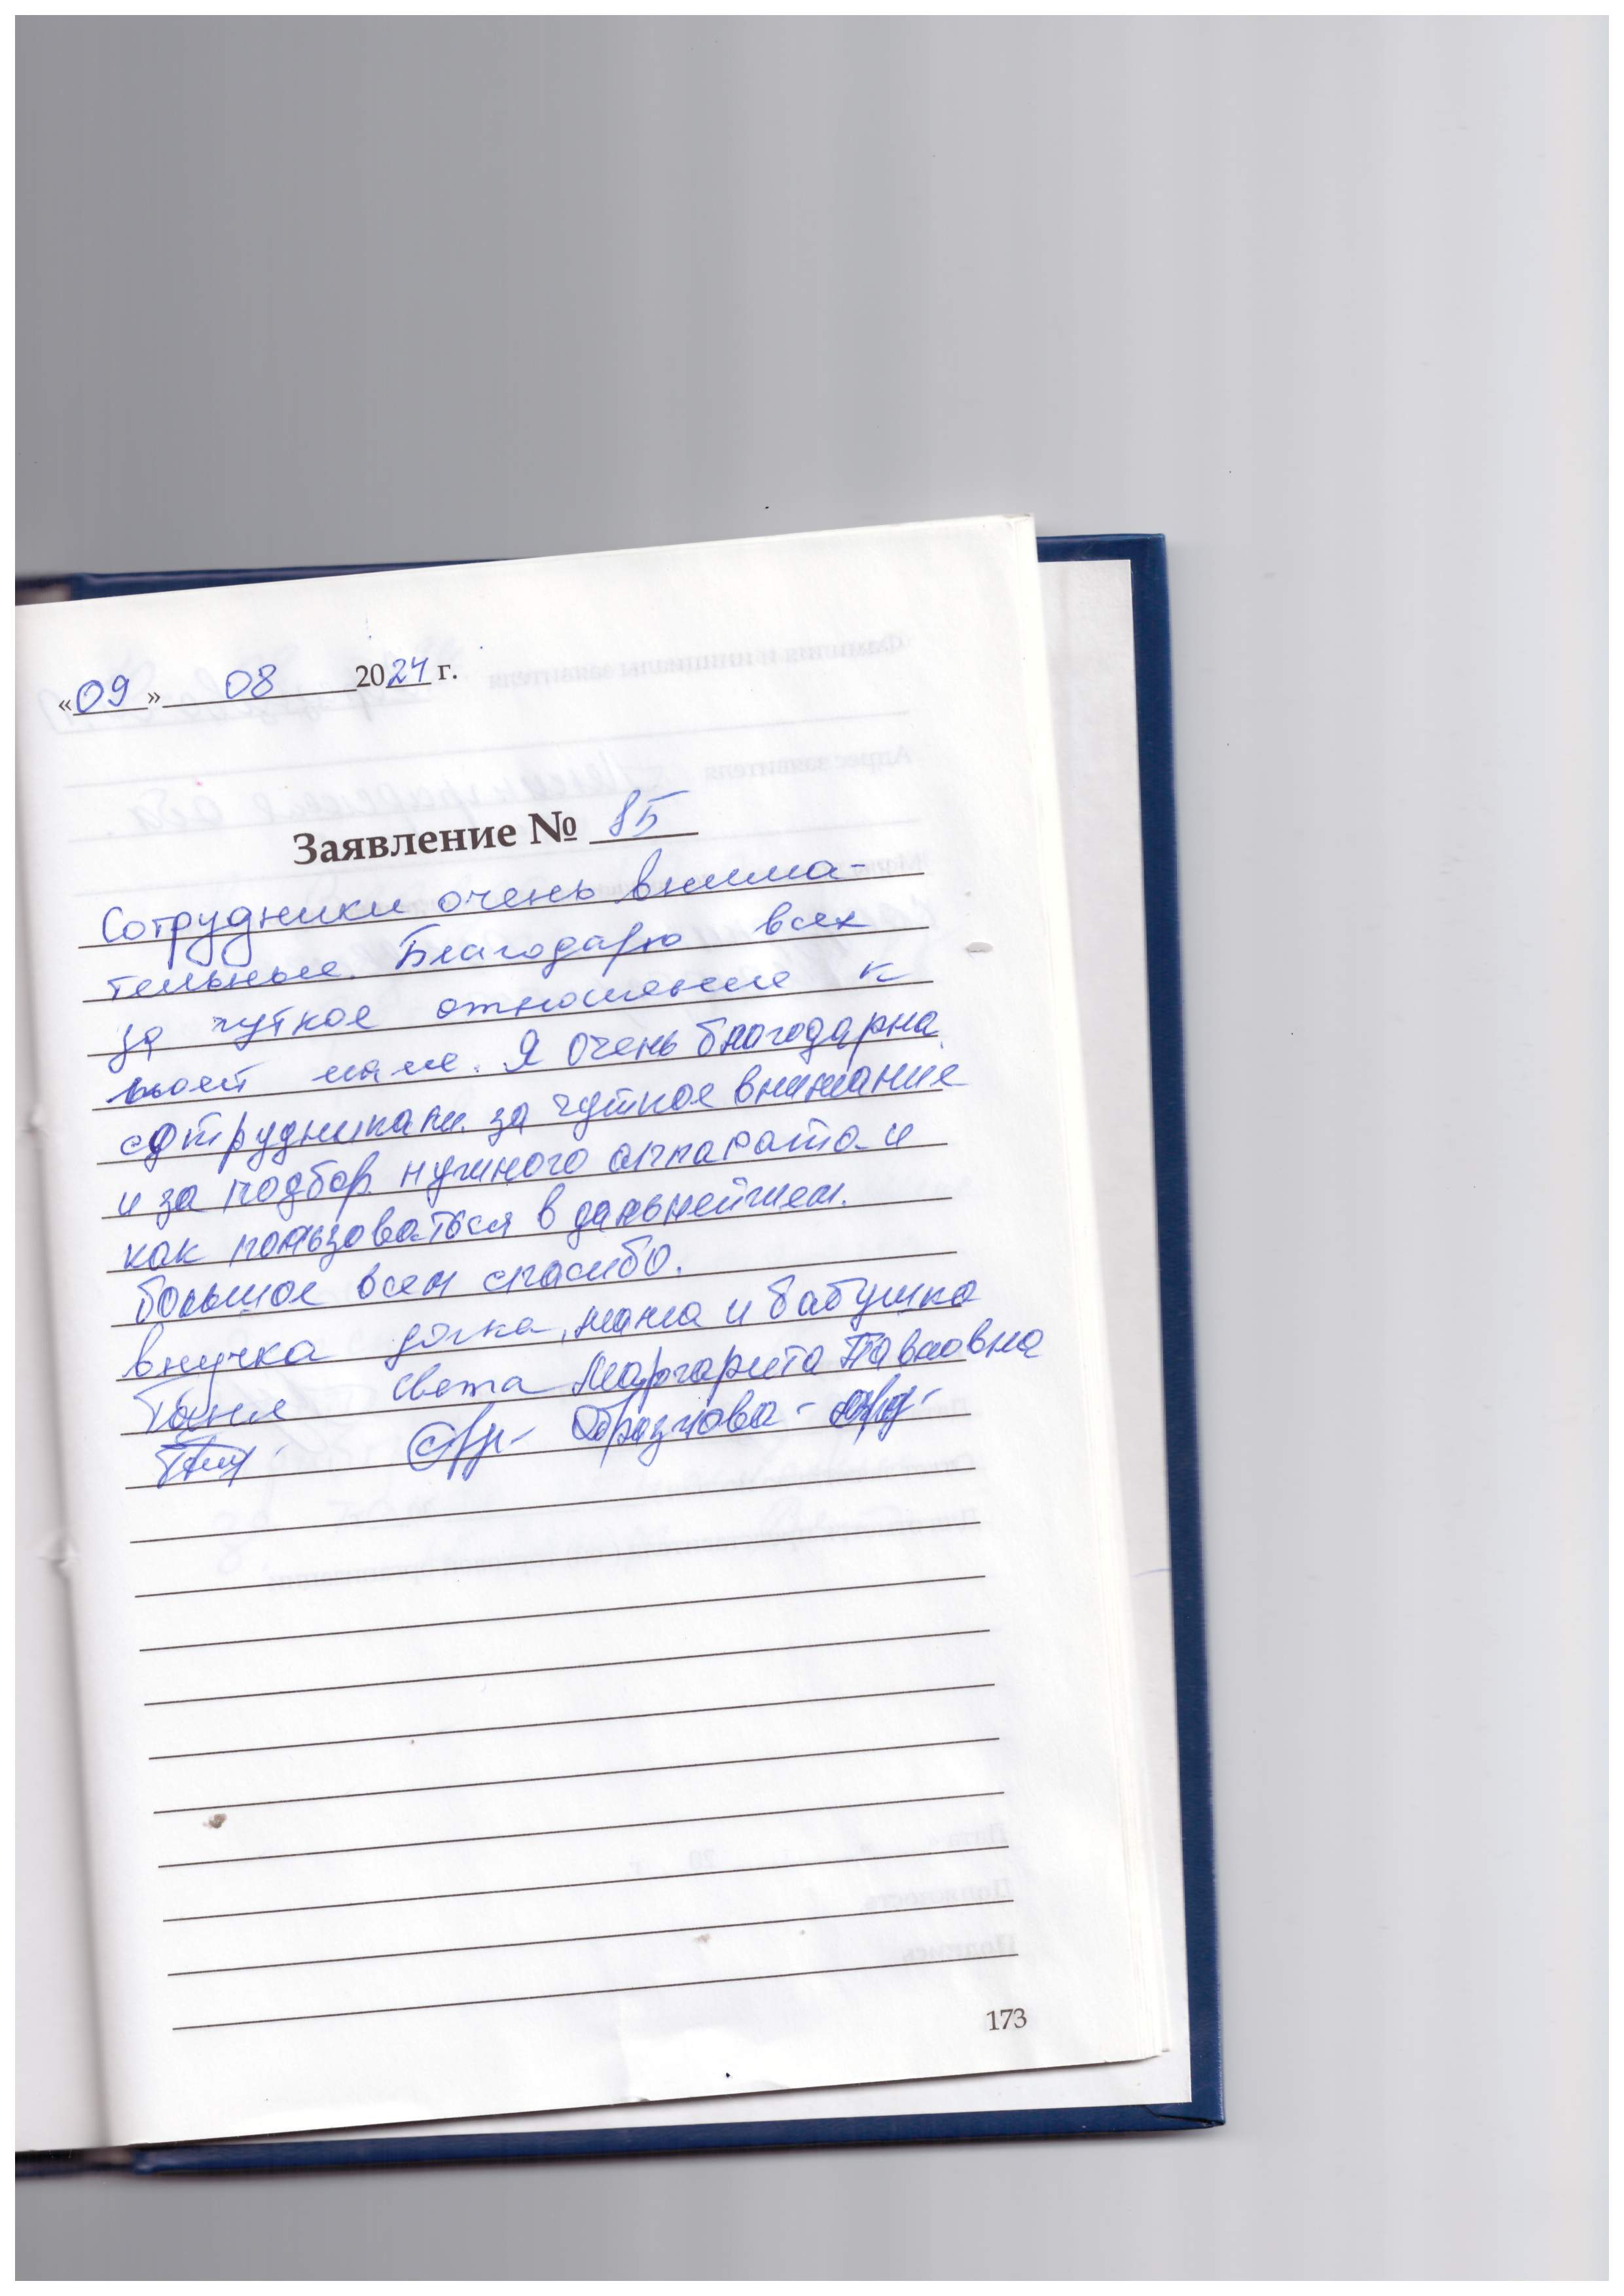 «09» 08 2024 г.
Заявление № 85
Сотрудники очень внима-
тельные. Благодарю всех
за чуткое отношение к
моей маме. Я очень благодарна
сотрудникам за чуткое внимание
и за подбор нужного аппарата и
как пользоваться в дальнейшем.
большое всем спасибо.
внучка дочка, мама и бабушка
Таня света Маргарита Павловна
Образцова -
173